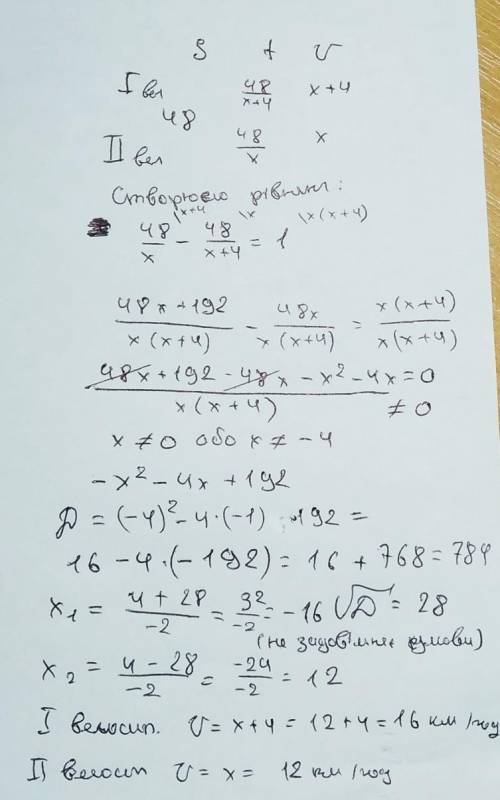 S t v
I вел 48/(x+4) x+4
48
II вел 48/x x
Створюємо рівнян:
48/x \x+4 - 48/(x+4) \x = 1 \x(x+4)
(48x+192)/(x(x+4)) - 48x/(x(x+4)) = x(x+4)/(x(x+4))
(48x+192-48x-x²-4x)/(x(x+4)) = 0 ≠0
x ≠ 0 або x ≠ -4
-x² - 4x + 192
D = (-4)² - 4·(-1) · 192 =
16 - 4·(-192) = 16 + 768 = 784
x₁ = (4+28)/-2 = 32/-2 = -16 √D = 28
(не задовільняє умови)
x₂ = (4-28)/-2 = -24/-2 = 12
I велосип. V = x+4 = 12+4 = 16 км/год
II велосип V = x = 12 км/год